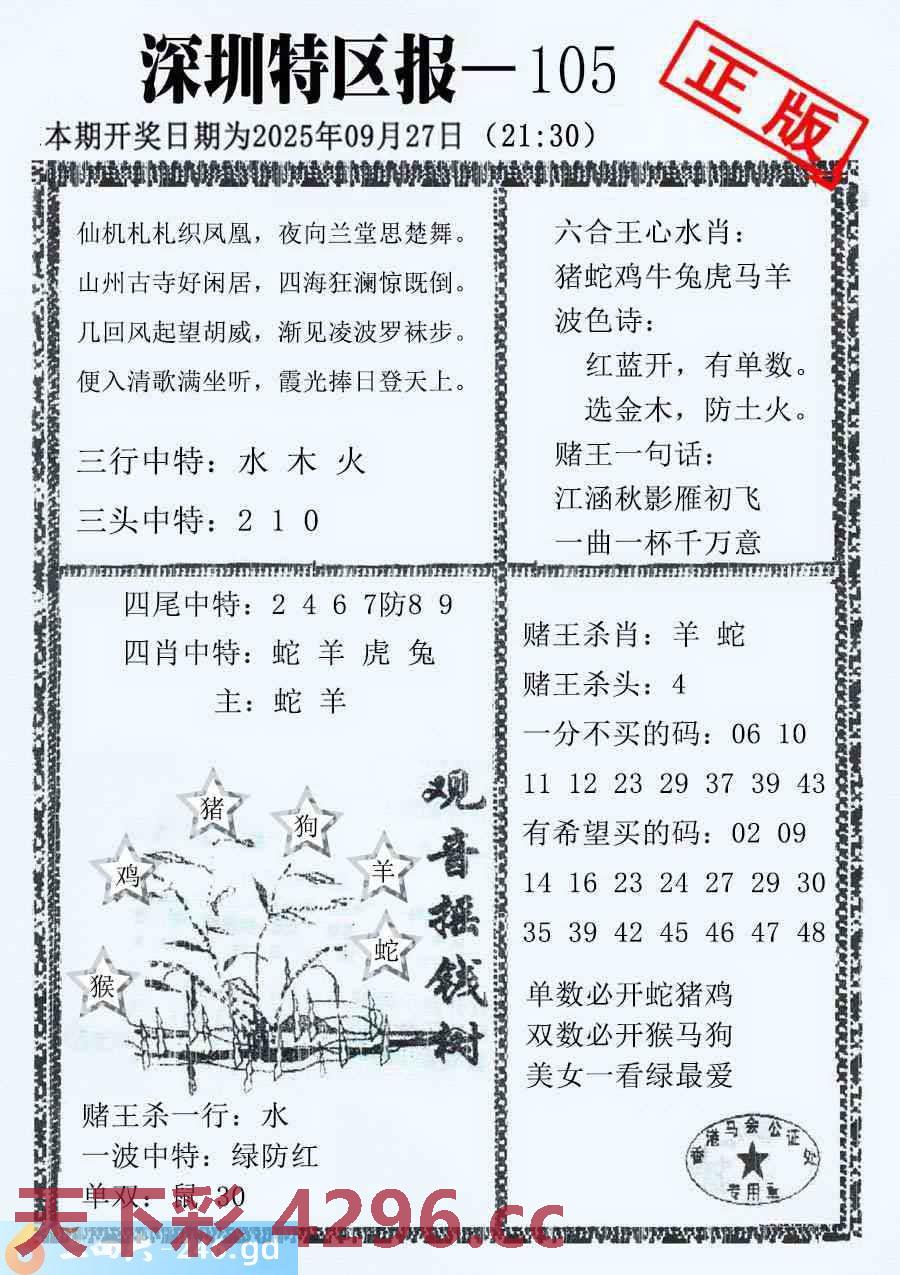 深圳特区报—105
正版
本期开奖日期为2025年09月27日（21:30）
仙机札札织凤凰，夜向兰堂思楚舞。
山州古寺好闲居，四海狂澜惊既倒。
几回风起望胡威，渐见凌波罗袜步。
便入清歌满坐听，霞光捧日登天上。
三行中特：水 木 火
三头中特：2 1 0
六合王心水肖：
猪蛇鸡牛兔虎马羊
波色诗：
红蓝开，有单数。
选金木，防土火。
赌王一句话：
江涵秋影雁初飞
一曲一杯千万意
四尾中特：2 4 6 7防8 9
四肖中特：蛇 羊 虎 兔
主：蛇 羊
猪
狗
鸡
羊
蛇
猴
观音摇钱树
赌王杀一行：水
一波中特：绿防红
单双：鼠 30
赌王杀肖：羊 蛇
赌王杀头：4
一分不买的码：06 10
11 12 23 29 37 39 43
有希望买的码：02 09
14 16 23 24 27 29 30
35 39 42 45 46 47 48
单数必开蛇猪鸡
双数必开猴马狗
美女一看绿最爱
香港马会公证处
专用章
天下彩 4296.cc